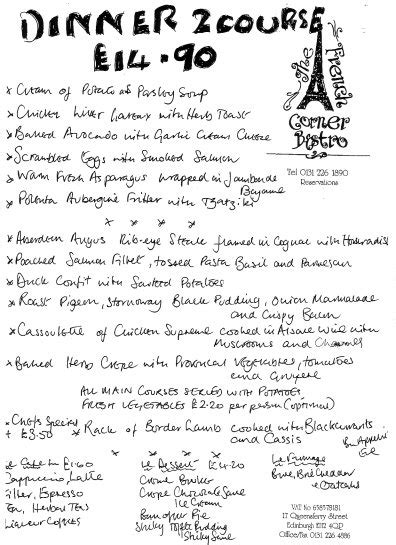 DINNER 2 COURSE
£14.90
The French Corner Bistro
Tel 0131 226 1890
Reservations
* Cream of Potato and Parsley Soup
* Chicken Liver Parfait with Herb Toast
* Baked Avocado with Garlic Cream Cheese
* Scrambled Eggs with Smoked Salmon
* Warm Fresh Asparagus wrapped in Jambon de
Bayonne
* Polenta Aubergine Fritter with Tzatziki
* * * *
* Aberdeen Angus Rib-eye Steak flamed in Cognac with Horseradish
* Poached Salmon Fillet, tossed Pasta Basil and Parmesan
* Duck Confit with Sauted Potatoes
* Roast Pigeon, Stornoway Black Pudding, Onion Marmalade
and Crispy Bacon
* Cassoulette of Chicken Supreme cooked in Alsace Wine with
Mushrooms and
* Baked Herb Crepe with Provencal Vegetables, tomatoes
and Gruyere
ALL MAIN COURSES SERVED WITH POTATOES
FRESH VEGETABLES £2.20 per person (optional)
* Chefs Special
+ £3.50 * Rack of Border Lamb cooked with Blackcurrants
and Cassis
Bon Appetit
Le Cafe £1.60
Cappuccino, Latte
Filter, Espresso
Tea, Herbal Teas
Liqueur Coffees
Le Dessert £4.20
Creme Brulee
Crepe Chocolate Sauce
Ice Cream
Banoffee Pie
Sticky Toffee Pudding
Sticky Sauce
Le Fromage
Brie, Cheddar
& Oatcakes
VAT No 658578181
17 Queensferry Street
Edinburgh EH2 4QP
Office/Fax 0131 226 4886